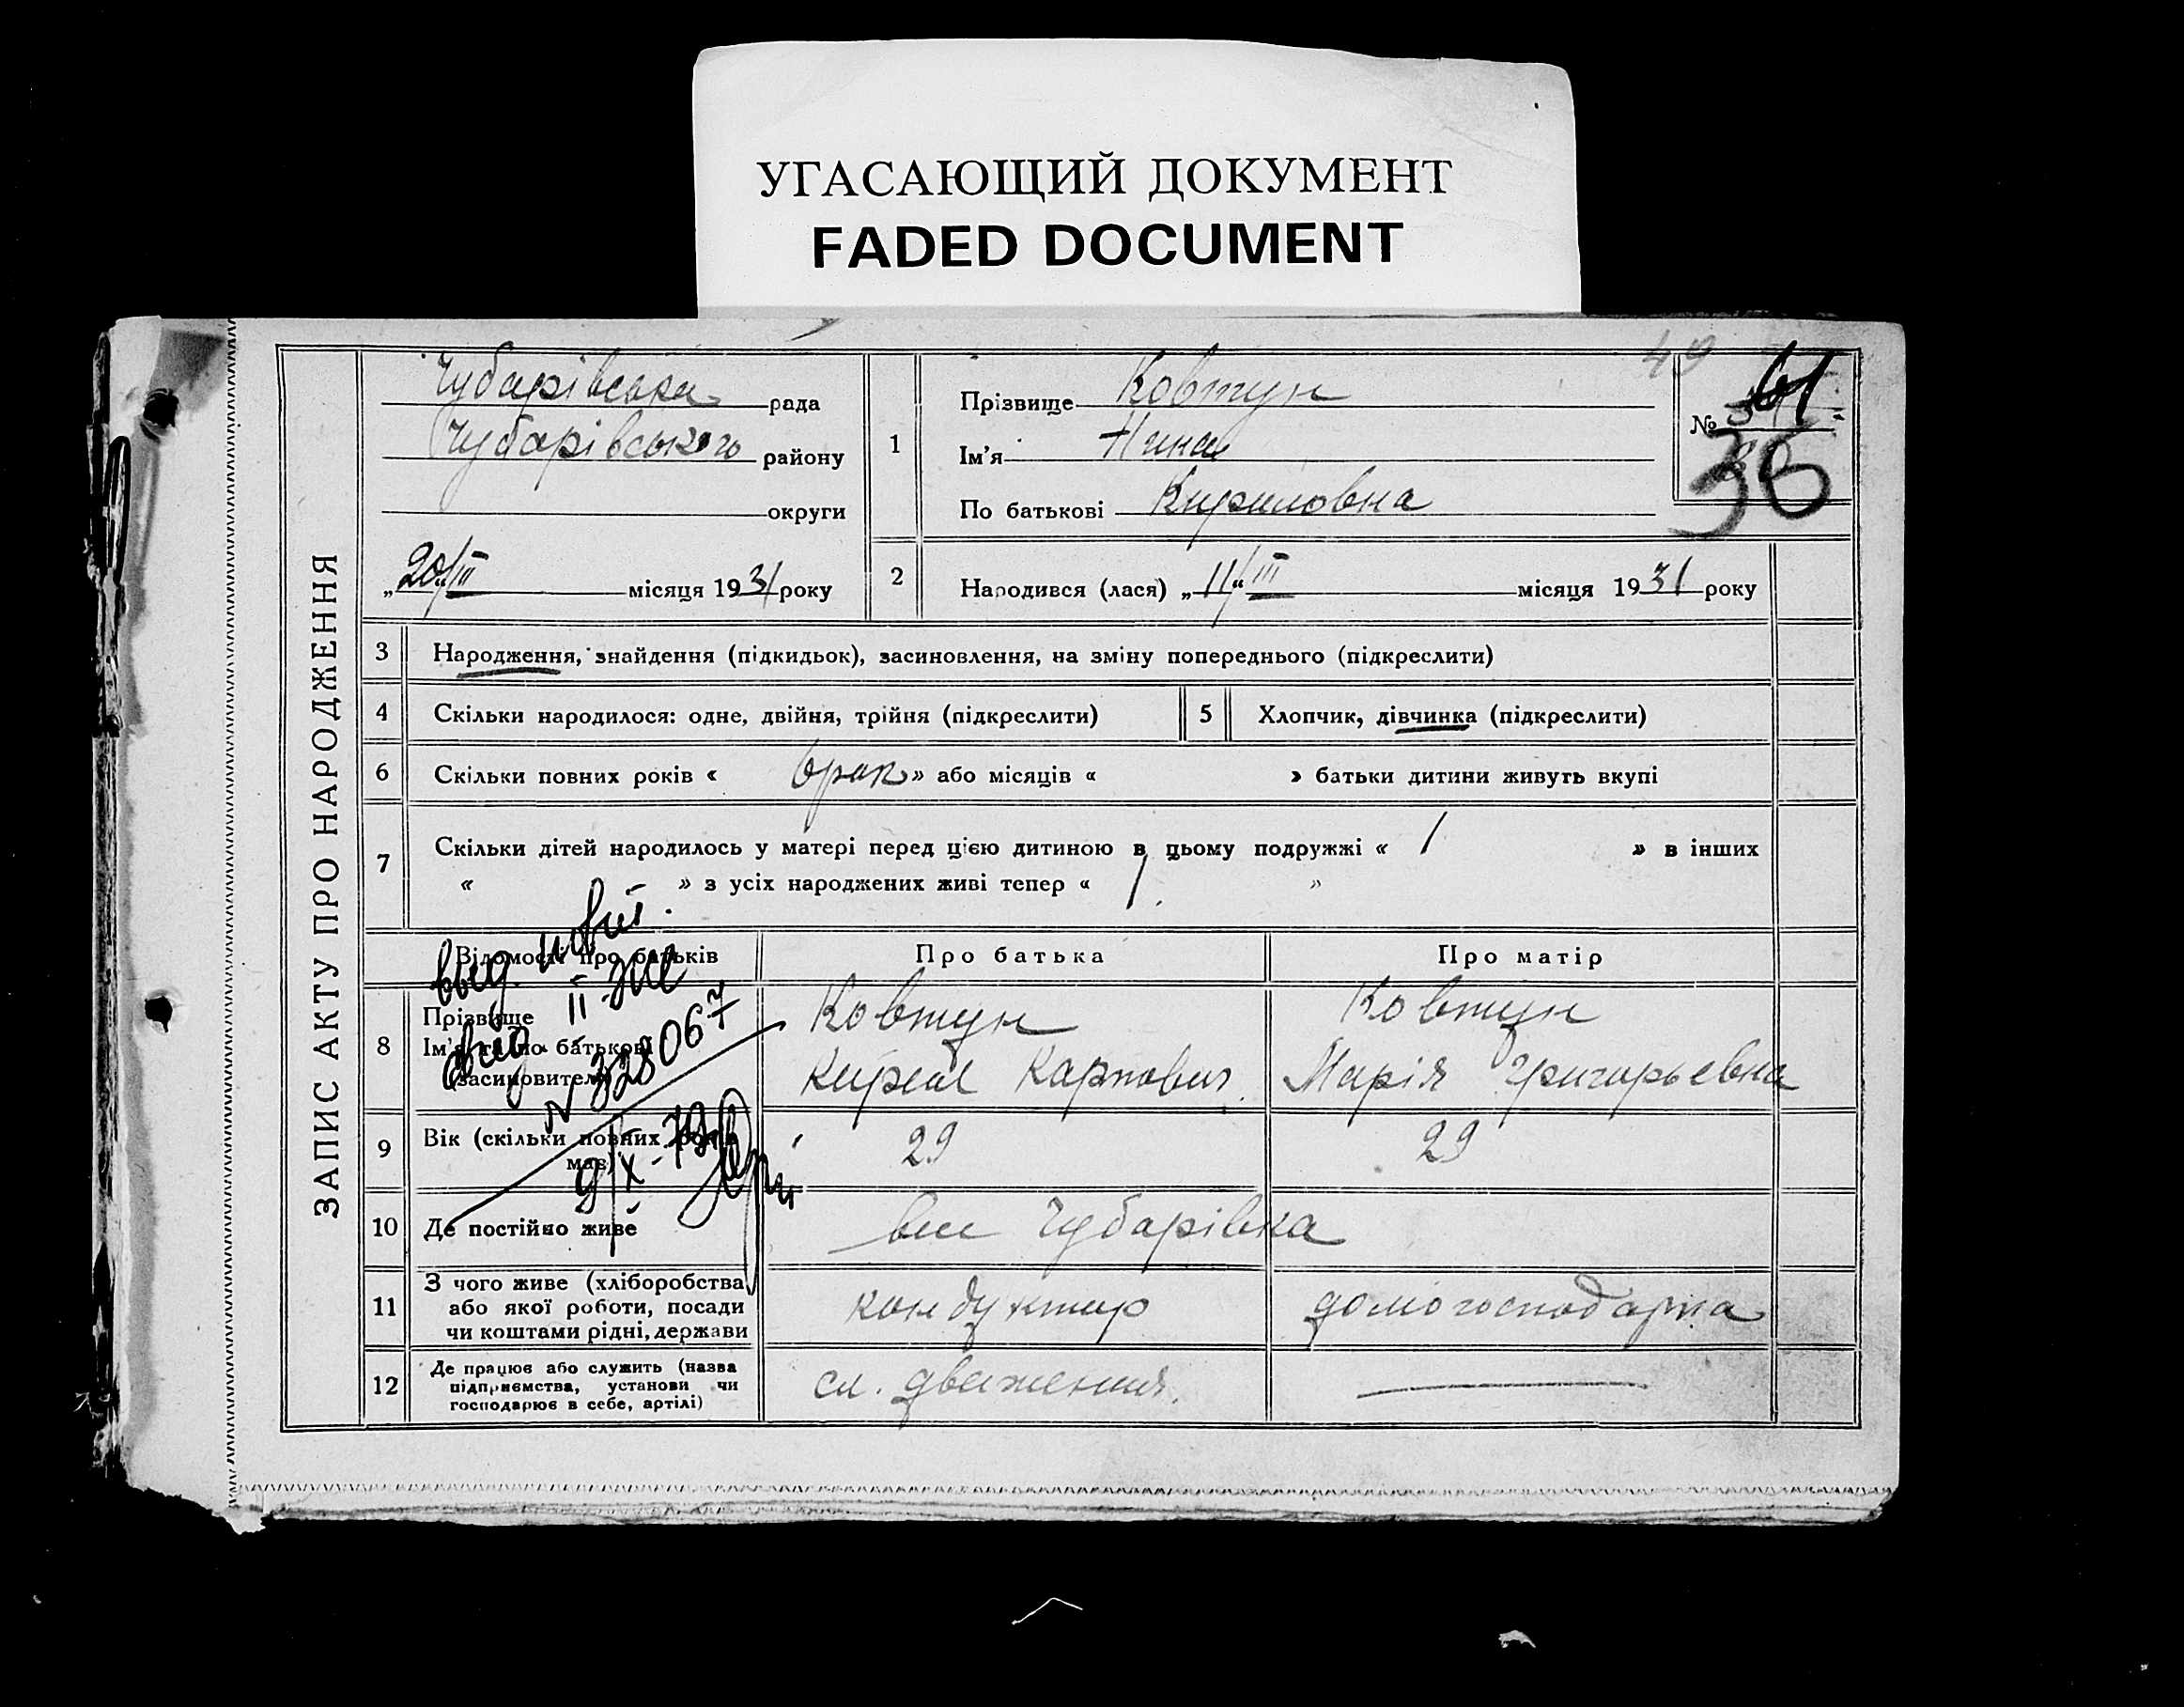 УГАСАЮЩИЙ ДОКУМЕНТ
FADED DOCUMENT
ЗАПИС АКТУ ПРО НАРОДЖЕННЯ
49
Чубарівська рада
Чубарівського району
округи
„20/III місяця 1931 року
1
Прізвище Ковтун
Ім'я Нина
По батькові Кириловна
№ 61
36
2
Народився (лася) „11“/III місяця 1931 року
3 Народження, знайдення (підкидьок), засиновлення, на зміну попереднього (підкреслити)
4 Скільки народилося: одне, двійня, трійня (підкреслити)
5 Хлопчик, дівчинка (підкреслити)
6 Скільки повних років « брак » або місяців « » батьки дитини живуть вкупі
7 Скільки дітей народилось у матері перед цією дитиною в цьому подружжі « 1 » в інших
« » з усіх народжених живі тепер « 1 »
Відомості про батьків
Про батька
Про матір
8 Прізвище
Ім'я та по батькові
(засиновителя)
Ковтун
Кирил Карпович
Ковтун
Марія Григорьевна
выд.
II
№ 328067
9/X-73
9 Вік (скільки повних років
має)
29
29
10 Де постійно живе
Чубарівка
11 З чого живе (хліборобства,
або якої роботи, посади
чи коштами рідні, держави
кондуктор
домогосподарка
12 Де працює або служить (назва
підприємства, установи чи
господарює в себе, артілі)
сл. движения.